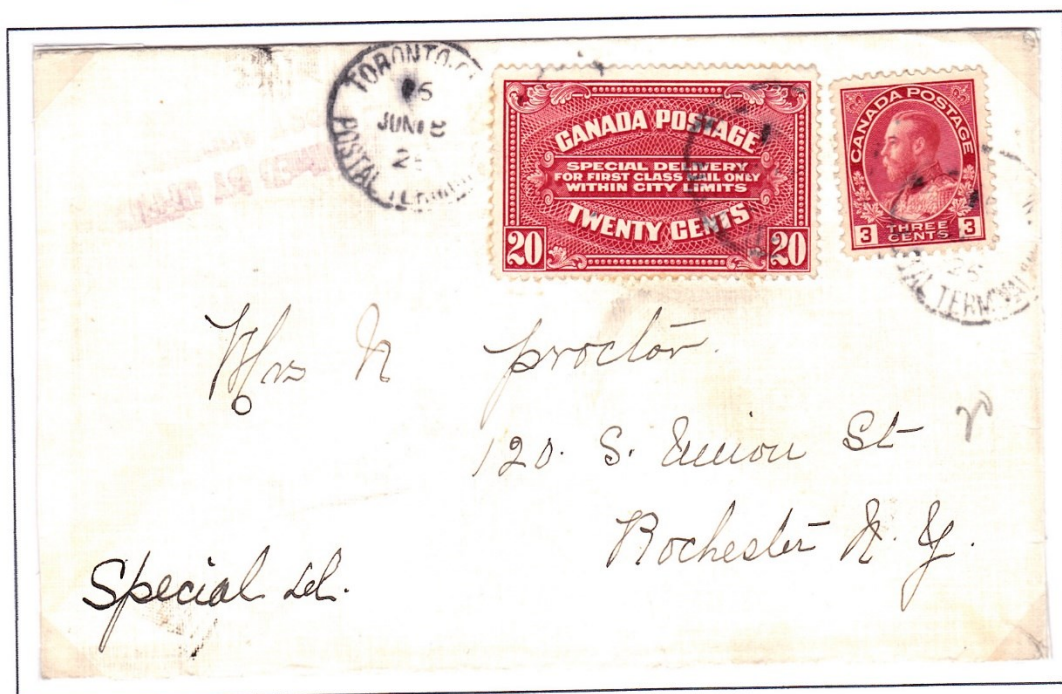 TORONTO
JUN 18
POSTAL TERMINAL
CANADA POSTAGE
SPECIAL DELIVERY
FOR FIRST CLASS MAIL ONLY
WITHIN CITY LIMITS
TWENTY CENTS
20 20
CANADA POSTAGE
3 THREE CENTS 3
TERMINAL
Mrs N Proctor.
120. S. Union St
Rochester N. Y.
Special Del.